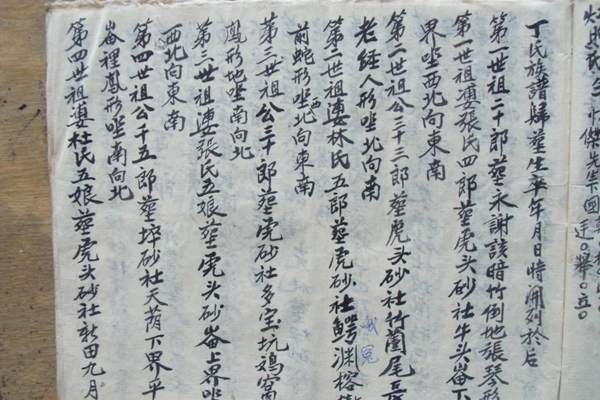 丁氏族譜歸塟生卒年月日時開列於后
第一世祖二十郎塟永謝該暗竹倒地張琴形
第一世祖婆張氏四郎塟虎头砂社牛头崙下
界坐西北向東南
第二世祖公三十三郎塟虎头砂社竹園尾長
老经人形坐北向南
第二世祖婆林氏五郎塟虎砂社鳄渊榕
前蛇形坐西北向東南
第三世祖公三十郎塟虎砂社多宝坑鴉窩
鳳形地坐南向北
第三世祖婆張氏五娘塟虎头砂崙上界坐
西北向東南
第四世祖公千五郎塟埣砂社天蔭下界平
崙裡鳳形坐南向北
第四世祖婆杜氏五娘塟虎头砂社新田九月